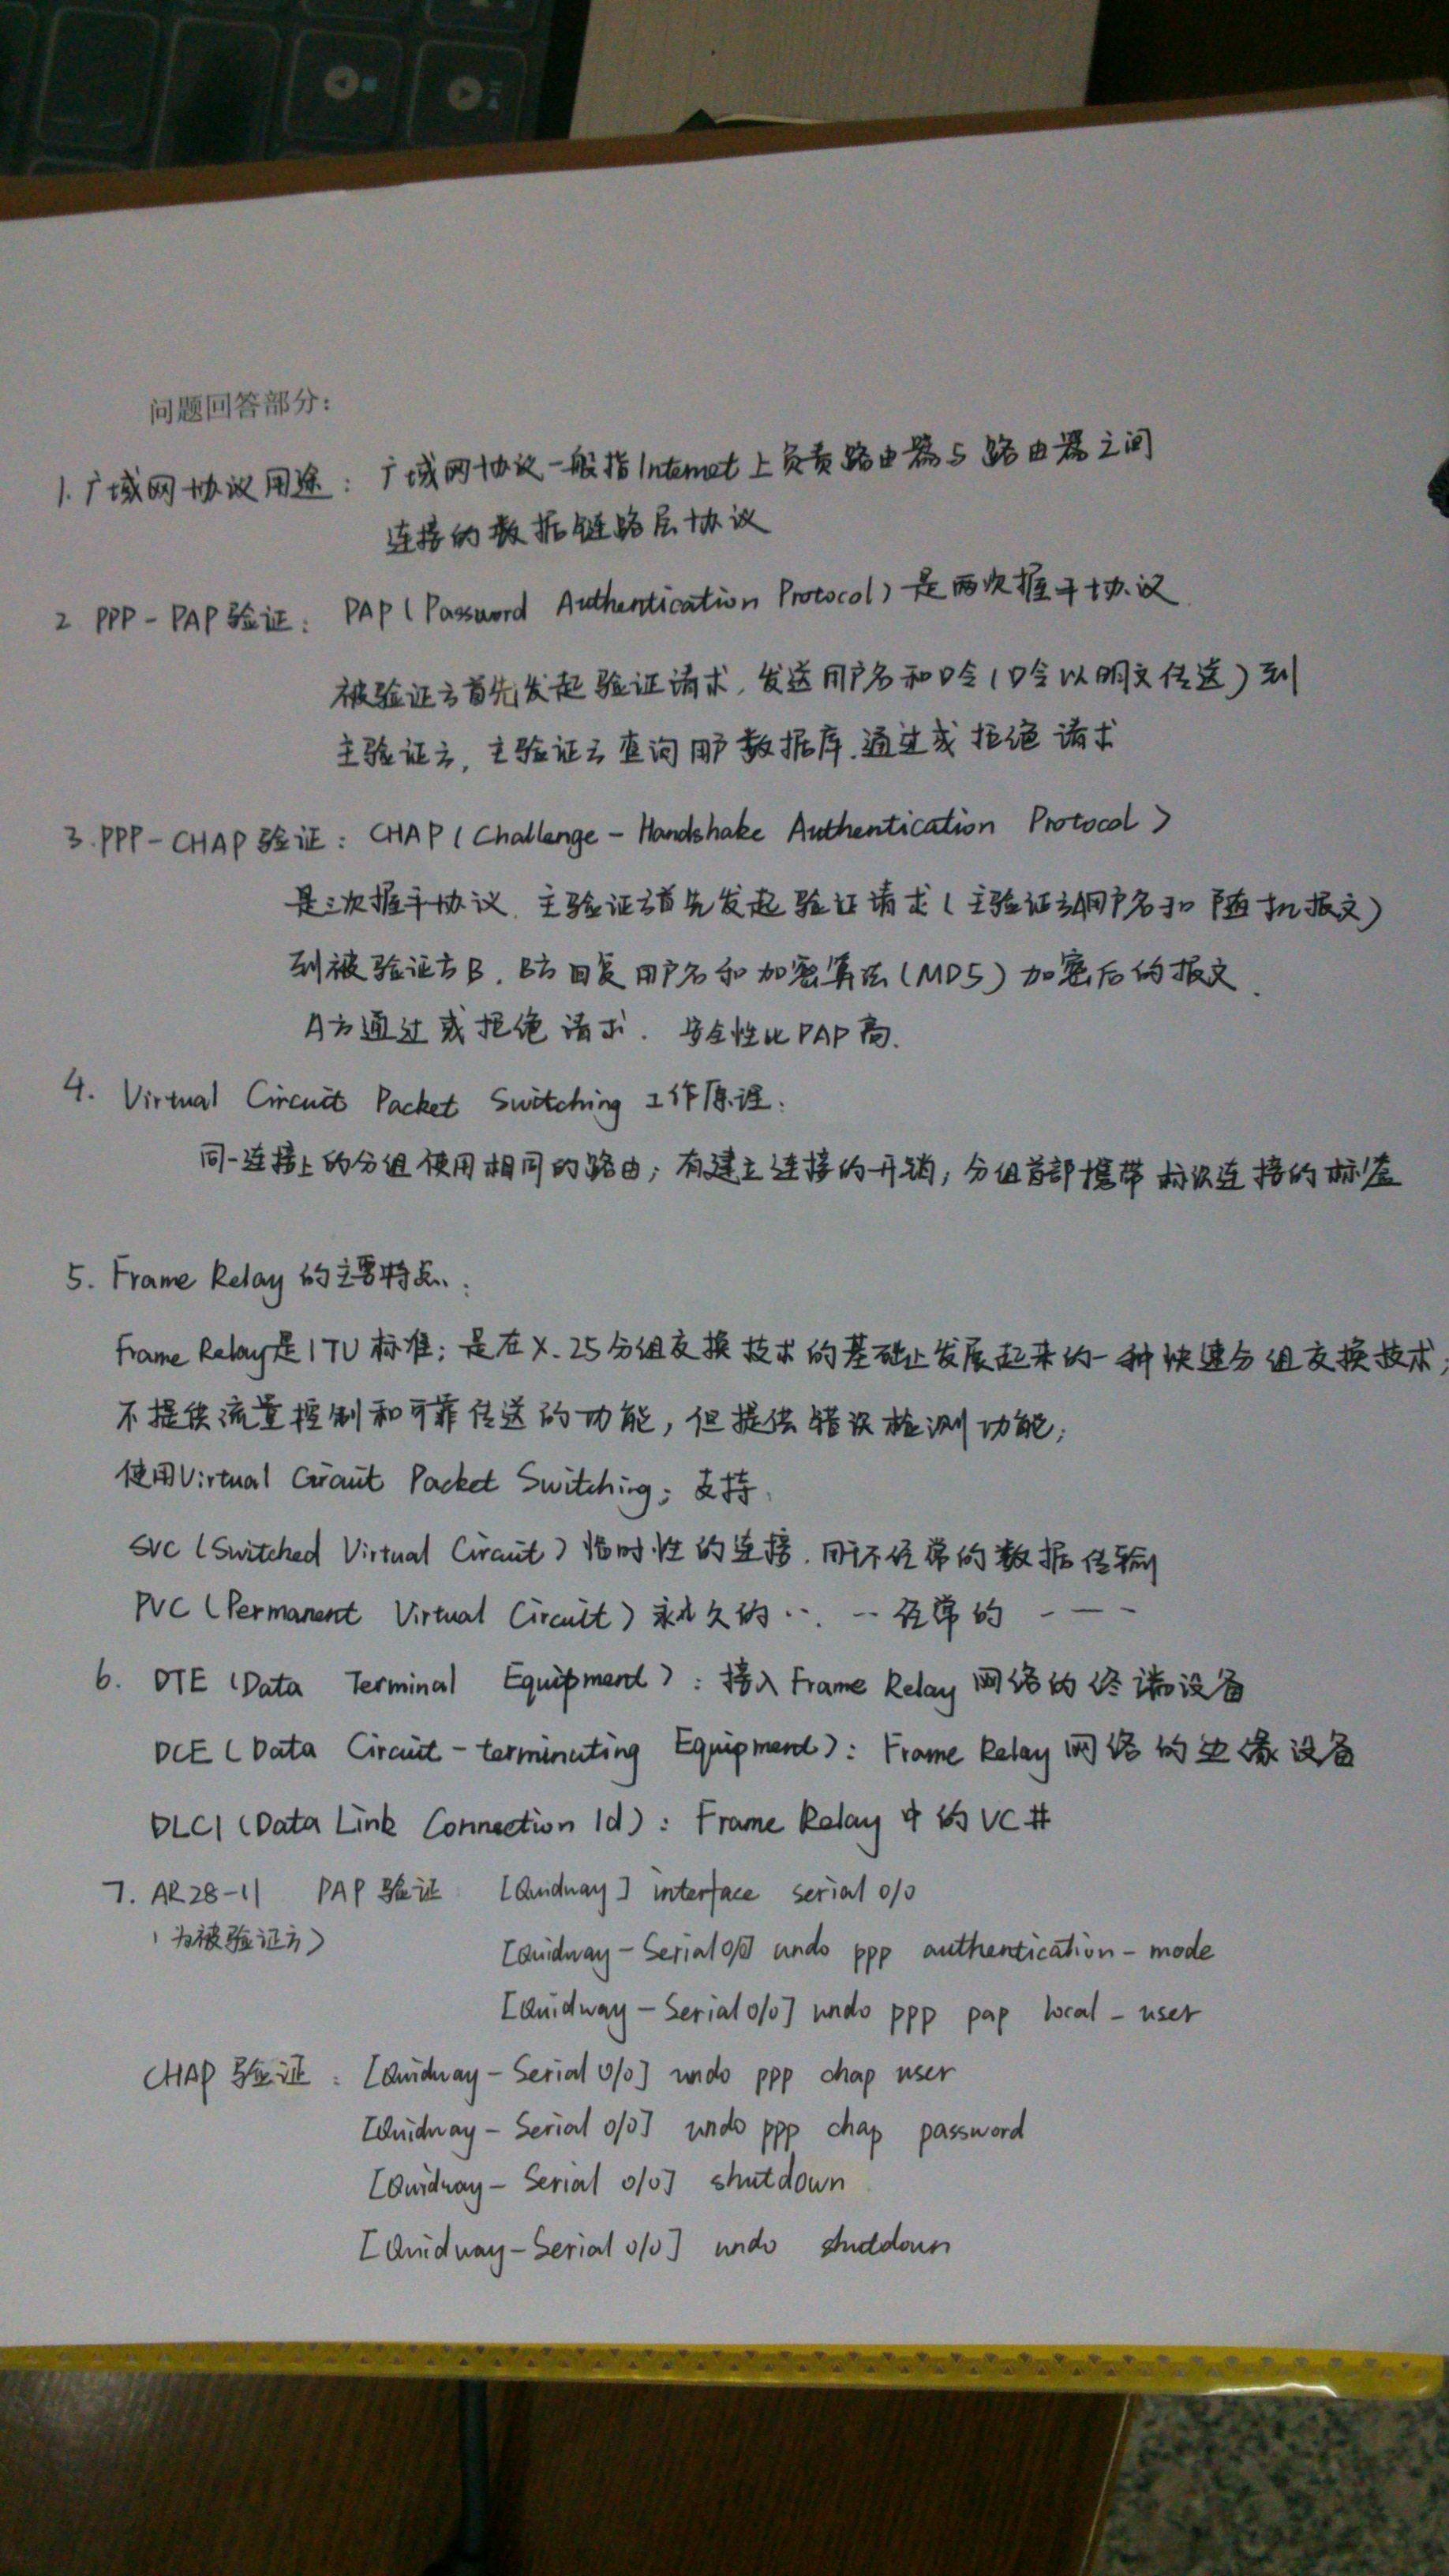 问题回答部分:
1. 广域网协议用途: 广域网协议一般指Internet上负责路由器与路由器之间
连接的数据链路层协议
2 PPP-PAP验证: PAP(Password Authentication Protocol)是两次握手协议.
被验证方首先发起验证请求, 发送用户名和口令(口令以明文传送)到
主验证方, 主验证方查询用户数据库.通过或拒绝请求
3.PPP-CHAP验证: CHAP(Challenge-Handshake Authentication Protocol)
是三次握手协议. 主验证方首先发起验证请求(主验证方A用户名和随机报文)
到被验证方B. B方回复用户名和加密算法(MD5)加密后的报文.
A方通过或拒绝请求. 安全性比PAP高.
4. Virtual Circuit Packet Switching 工作原理:
同一连接上的分组使用相同的路由; 有建立连接的开销; 分组首部携带标识连接的标签
5. Frame Relay的主要特点:
Frame Relay是ITU标准; 是在X.25分组交换技术的基础上发展起来的一种快速分组交换技术;
不提供流量控制和可靠传送的功能, 但提供错误检测功能;
使用Virtual Circuit Packet Switching; 支持
SVC(Switched Virtual Circuit)临时性的连接. 用于不经常的数据传输
PVC(Permanent Virtual Circuit)永久的 ... -- 经常的 ---
6. DTE(Data Terminal Equipment): 接入Frame Relay网络的终端设备
DCE(Data Circuit-terminating Equipment): Frame Relay网络的边缘设备
DLCI(Data Link Connection Id): Frame Relay中的VC#
7. AR28-11 PAP验证: [Quidway] interface serial 0/0
(为被验证方)
[Quidway-Serial0/0] undo ppp authentication-mode
[Quidway-Serial0/0] undo ppp pap local-user
CHAP验证: [Quidway-Serial 0/0] undo ppp chap user
[Quidway-Serial 0/0] undo ppp chap password
[Quidway-Serial 0/0] shutdown
[Quidway-Serial 0/0] undo shutdown